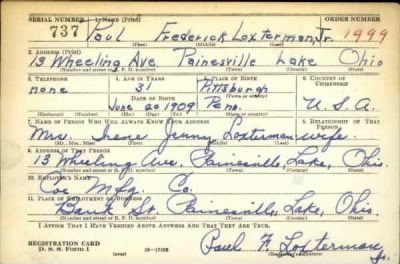 SERIAL NUMBER 1. NAME (Print) ORDER NUMBER
737 Paul Frederick Loxterman, Jr. 1999
(First) (Middle) (Last)
2. ADDRESS (Print)
13 Wheeling Ave. Painesville Lake Ohio
(Number and street or R. F. D. number) (Town) (County) (State)
3. TELEPHONE 4. AGE IN YEARS 5. PLACE OF BIRTH 6. COUNTRY OF CITIZENSHIP
none 31 Pittsburgh
DATE OF BIRTH (Town or county)
June 20 1909 Penn. U.S.A.
(Mo.) (Day) (Yr.) (State or country)
7. NAME OF PERSON WHO WILL ALWAYS KNOW YOUR ADDRESS 8. RELATIONSHIP OF THAT PERSON
Mrs. Irene Jenny Loxterman-wife.
(Mr., Mrs., Miss) (First) (Middle) (Last)
9. ADDRESS OF THAT PERSON
13 Wheeling Ave, Painesville, Lake, Ohio.
(Number and street or R. F. D. number) (Town) (County) (State)
10. EMPLOYER'S NAME
Coe Mfg. Co.
11. PLACE OF EMPLOYMENT OR BUSINESS
Bank St. Painesville, Lake, Ohio.
(Number and street or R. F. D. number) (Town) (County) (State)
I AFFIRM THAT I HAVE VERIFIED ABOVE ANSWERS AND THAT THEY ARE TRUE.
REGISTRATION CARD
D. S. S. FORM 1 (over) 16—17105 Paul F. Loxterman Jr.